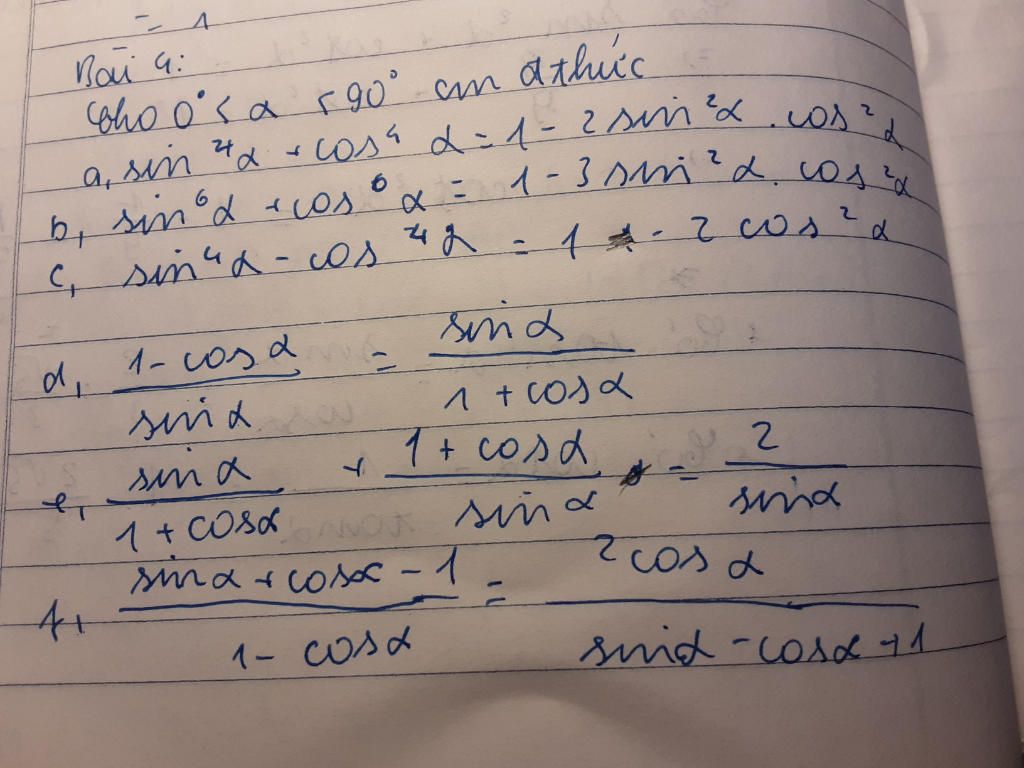 = 1
Bài 4:
Cho 0° < α < 90° cm đthức
a, sin⁴α + cos⁴ α = 1 - 2 sin²α . cos²α
b, sin⁶α + cos⁶ α = 1 - 3 sin²α . cos²α
c, sin⁴α - cos⁴α = 1 - 2 cos²α
d, (1 - cos α)/(sin α) = (sin α)/(1 + cosα)
e, (sin α)/(1 + cosα) + (1 + cosα)/(sin α) = 2/(sinα)
f, (sinα + cosα - 1)/(1 - cosα) = (2cosα)/(sinα - cosα + 1)